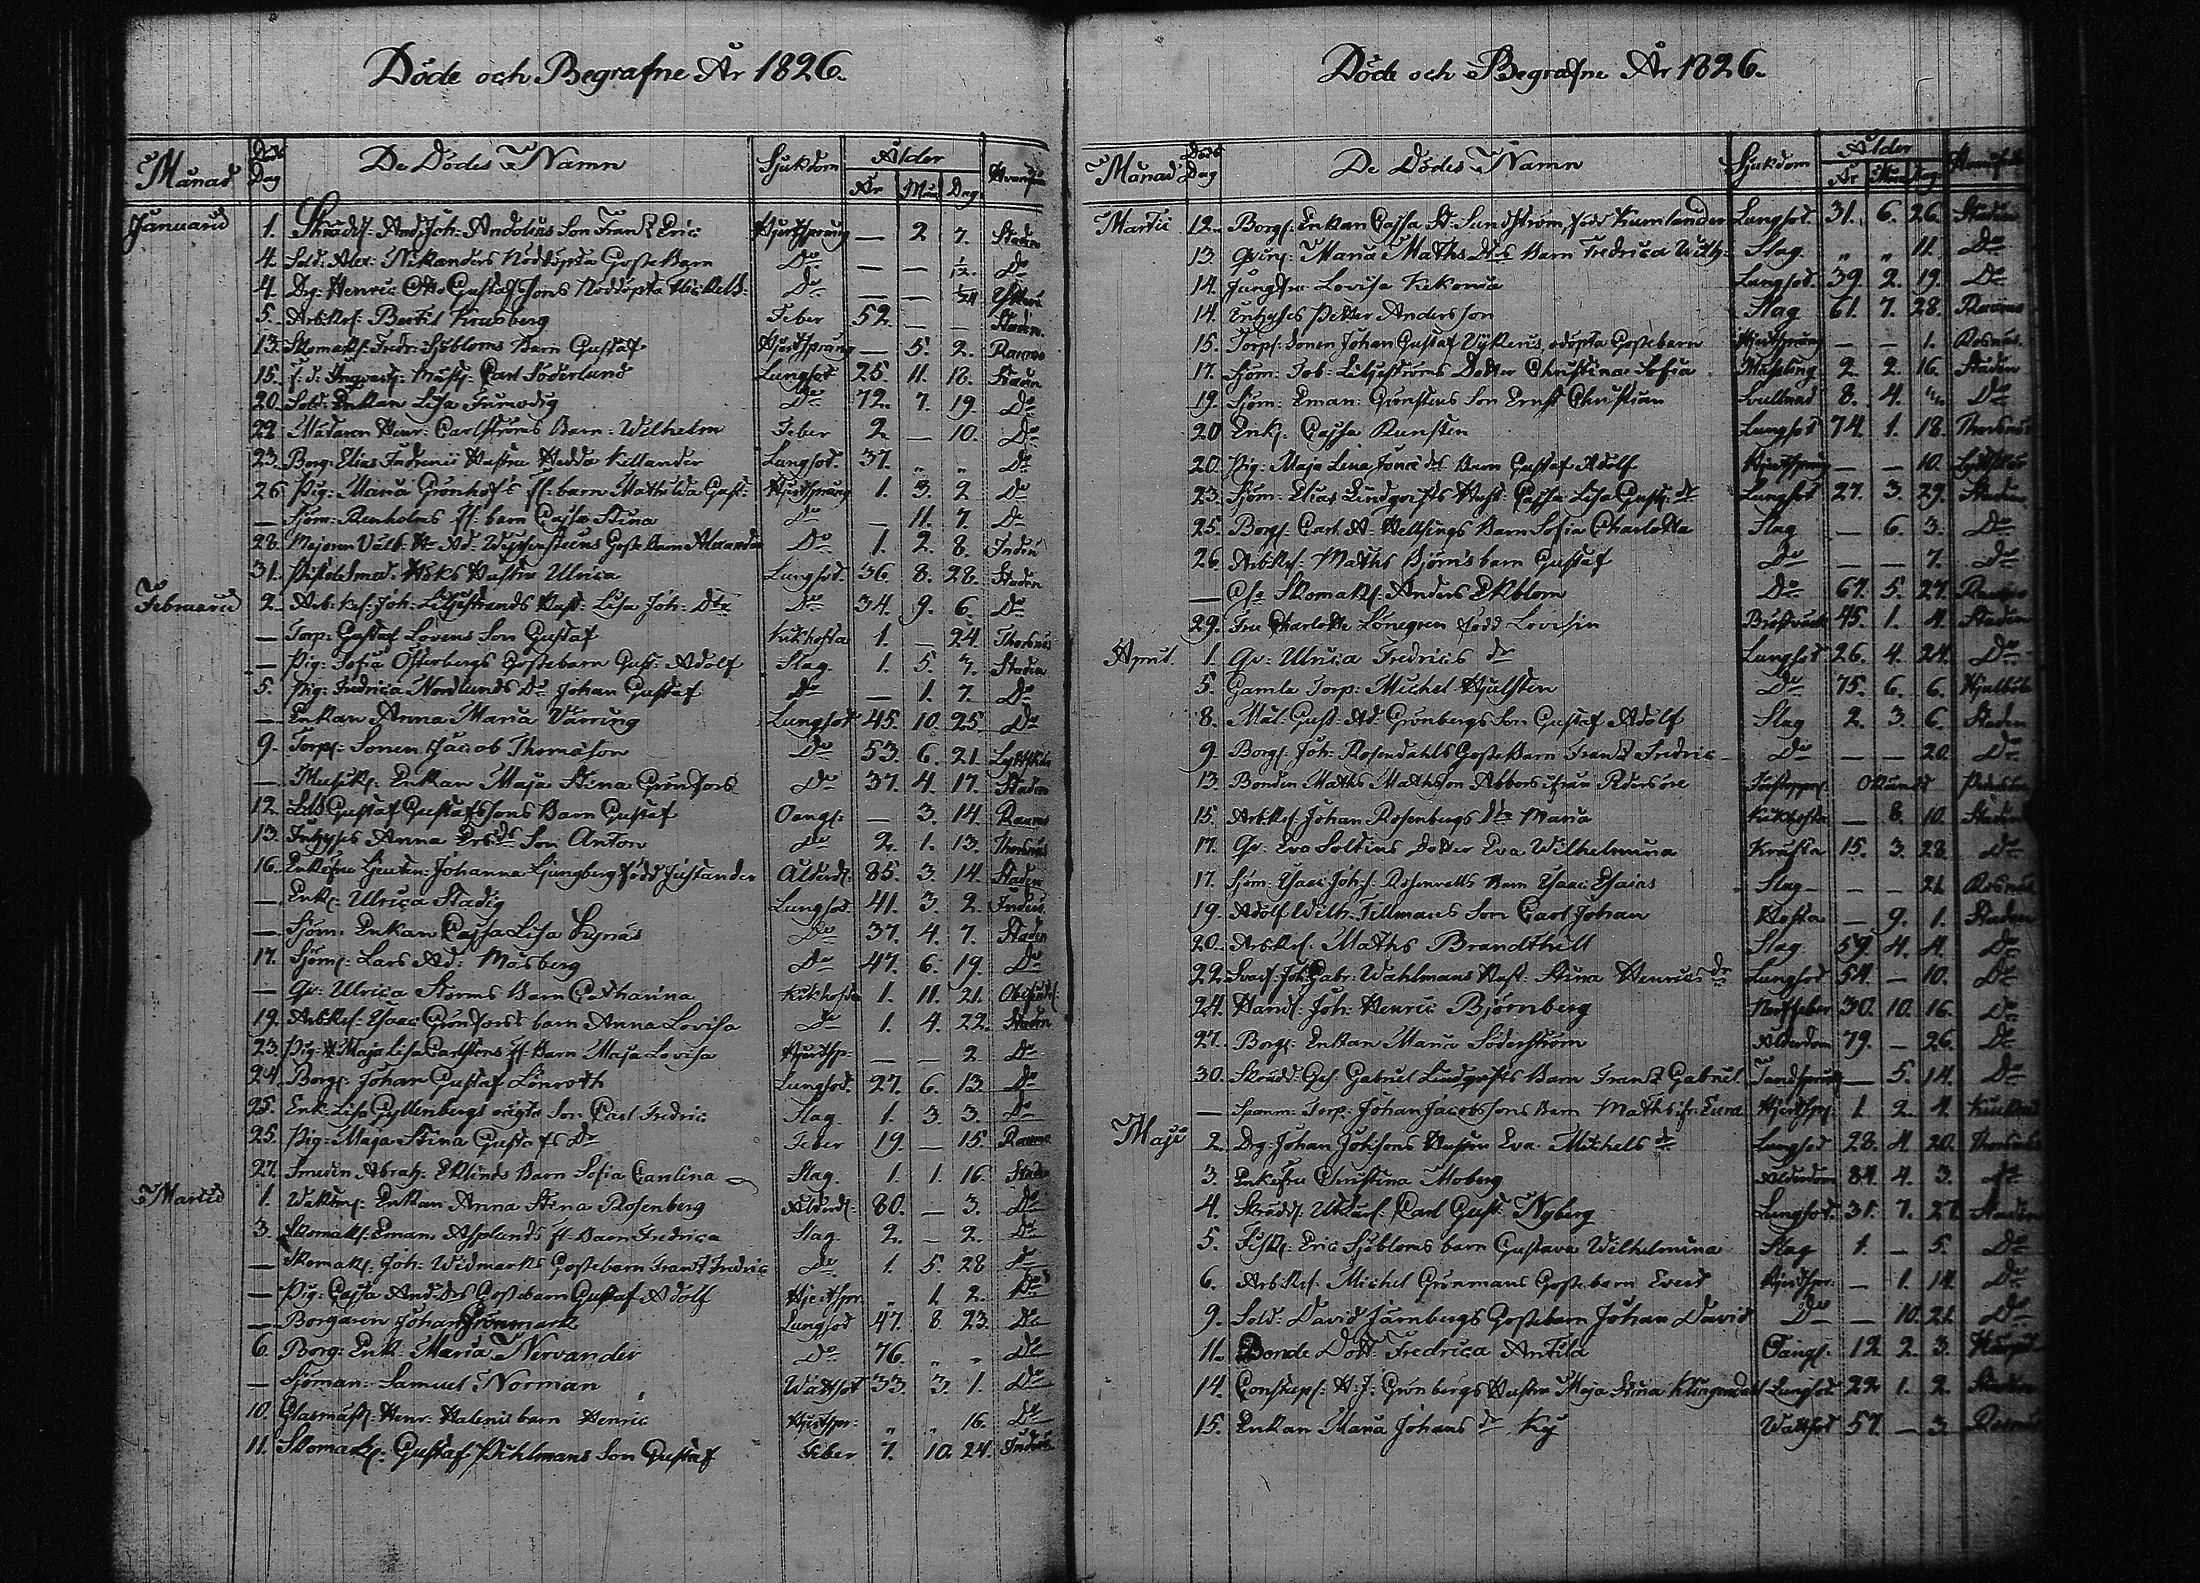 Döde och Begrafne År 1826.
Månad Döds Dag De Dödes Namn Sjukdom Ålder År Mån Dag
Januarii 1. Skrädd: And: Joh: Andelins Son Frantz Eric Hjertsprång — 2 7. Staden
4. Sold: Alex: Nikanders Nöddöpta Gosse Barn Do — — 1/12. Do
4. Drg: Henric Otto Gustafssons Nöddöpta Do — — 1/24
5. Arb:Kar: Bertil Krusberg Feber 52. — — Staden
13. Skomak: Fredr: Sjöbloms Barn Gustaf Hjertsprång — 5. 2. Raumo
15. f: d: Carl Söderlund Lungsot 25. 11. 18. Staden
20. Sold: Enkan Lisa Do 72. 7. 19. Do
22. Henr: Carlströms Barn: Wilhelm Feber 2. — 10. Do
23. Borg: Elias Hustru Hedda Kellander Lungsot. 37. „ „ Do
26. Pig: Maria Grönhofs barn Mathilda Gust: Hjertsprång 1. 3. 2 Do
— Sjöm: Renholms barn Cajsa Stina Do — 11. 7. Do
28. Majoren Gosse Barn Alexander Do 1. 2. 8.
31. Höks Hustru Ulrica Lungsot. 36. 8. 28. Staden
Februarii 2. Arb: Kar: Joh: Liljestrands Hust: Lisa Joh: Dtr Do 34. 9. 6. Do
— Torp: Gustaf Lovens Son Gustaf Kikhosta 1. — 24. Thorsnäs
— Pig: Sofia Österbergs Gossebarn Gust: Adolf Slag. 1. 5. 7. Staden
5. Pig: Fredrica Nordlunds Do Johan Gustaf Do — 1. 7. Do
— Enkan Anna Maria Värring Lungsot 45. 10. 25. Do
9. Torp: Sonen Jacob Thomasson Do 53. 6. 21.
— Enkan Maja Stina Grönfors Do 37. 4. 17. Staden
12. Gustaf Gustafssons Barn Gustaf — 3. 14. Raumo
13. Inhyses Anna Ersds Son Anton Do 2. 1. 13. Thorsnäs
16. Enkefru Johanna Ljungberg född Justander Ålderd: 85. 3. 14. Staden
— Enk: Ulrica Stadig Lungsot. 41. 3. 2.
— Sjöm: Enkan Cajsa Lisa Do 37. 4. 7. Staden
17. Sjöm: Lars Ad: Mosberg Do 47. 6. 19. Do
— Qv: Ulrica Storms Barn Catharina Kikhosta 1. 11. 21.
19. Arb:Kar: Isaac Grönfors barn Anna Lovisa Do 1. 4. 22. Staden
23. Pig: Maja Lisa Carlstens Barn Maja Lovisa Hjertsp: — — 2. Do
24. Borg: Johan Gustaf Lönroth Lungsot. 27. 6. 13 Do
25. Enk: Lisa Gyllenbergs Son Carl Fredric Slag. 1. 3. 3. Do
25. Pig: Maja Stina Gustafs Dr Feber 19. — 15. Raumo
27. Smeden Abrah: Eklunds Barn Sofia Carolina Slag. 1. 1. 16. Staden
Martii 1. Enkan Anna Stina Rosenberg Ålderd: 80. — 3. Do
3. Skomak: Eman: Asplunds Barn Fredrica Slag. 2. — 2. Do
— Skomak: Joh: Widmarks Gossebarn Frantz Fredric Do 1. 5. 28 Do
— Pig: Cajsa And:Drs Gossebarn Gustaf Adolf Hjertspr: „ 1. 2. Do
— Borgaren Johan Grönmark Lungsot 47. 8. 23. Do
6. Borg: Enk: Maria Nervander Do 76. „ „ Do
— Sjöman: Samuel Norman Wattsot 33. 3. 1. Do
10. Glasmäst: Henr: barn Henric Hjertspr: „ „ 16. Do
11. Skomak: Gustaf Pihlmans Son Gustaf Feber 7. 10. 24.
Döde och Begrafne År 1826.
Månad Döds Dag De Dödes Namn Sjukdom Ålder År Mån Dag
Martii 12. Borg: Enkan Cajsa St: Sundström, född Kumlander Lungsot. 31. 6. 26. Staden
13. Maria Maths Drs Barn Fredrica Wilh: Slag. „ „ 11. Do
14. Jungfru Lovisa Kekonia Lungsot. 39. 2. 19. Do
14. Inhyses Petter Andersson Slag 61. 7. 28. Raumo
15. Torp: Sonen Johan Gustaf odöpta Gossebarn Hjertsprång — — 1. Rosnäs
17. Sjöm: Jos: Liljeströms Dotter Christina Sofia Mässling 2. 2. 16. Staden
19. Sjöm: Eman: Grönstens Son Ernst Christian 8. 4. „ Do
20 Enk: Cajsa Runsten Lungsot 74. 1. 18. Thorsnäs
20. Pig: Maja Lena Drs Barn Gustaf Adolf Hjertsprång — — 10.
23. Sjöm: Elias Lindqvists Hust: Cajsa Lisa Gust: dr Lungsot 27. 3. 29. Staden
25. Borg: Carl A: Barn Sofia Charlotta Slag — 6. 3. Do
26. Arb:Kar: Maths Björns barn Gustaf Do — — 7. Do
— Skomak: Anders Ekblom Do 67. 5. 27. Raumo
29. Fru Charlotta Lönegren född Lovisin 45. 1. 4. Staden
April 1. Qv: Ulrica Fredrics dr Lungsot 26. 4. 24. Do
5. Gamla Torp: Michel Hjulsten Do 75. 6. 6.
8. Mål: Gust: Ad: Grönbergs Son Gustaf Adolf Slag 2. 3. 6. Staden
9. Borg: Joh: Rosendahls Gosse Barn Frantz Fredric Do — — 20. Do
13. Bonden Maths Mathsson Abbors ifrån Okändt
15. Arb:Kar: Johan Rosenbergs Dtr Maria Kikhosta — 8. 10. Staden
17. Qv: Eva Soltins Dotter Eva Wilhelmina Kräfta 15. 3. 28. Do
17. Sjöm: Isaac Joh: Rosenvalls Barn Isaac Esaias Slag — — 21. Rosnäs
19. Adolf Wilh: Tillmans Son Carl Johan Hosta — 9. 1. Staden
20. Arb:Kar: Maths Brandthill Slag 59. 4. 4. Do
22. Joh: Gabr: Wahlmans Hust: Stina Henrics dr Lungsot 54. — 10. Do
24. Hand: Joh: Henric Björnberg 30. 10. 16. Do
27. Borg: Enkan Maria Söderström Ålderdom 79. — 26. Do
30. Skrädd: Ges: Gabriel Lindqvists Barn Frantz Gabriel Tandsprång — 5. 14. Do
— Torp: Johan Jacobssons Barn Maths ifr: Eura Hjertspr: 1. 2. 4.
Maji 2. Drg: Johan Johssons Hustru Eva Michels dr Lungsot 28. 4. 20.
3. Enkefru Christina Moberg Ålderdom 84. 4. 3. Do
4. Skrädd: Carl Gust: Nyberg Lungsot. 31. 7. 27 Staden
5. Fisk: Eric Sjöbloms barn Gustava Wilhelmina Slag 1. — 5. Do
6. Arb:Kar: Michel Grönmans Gossebarn Evert Hjertspr: — 1. 14. Do
9. Sold: David Järnbergs Gossebarn Johan David Do — 10. 21. Do
11. Bonde Dott: Fredrica Antila 12. 2. 3.
14. H: J: Grönbergs Hustru Maja Stina Klingendahl Lungsot 22. 1. 2. Staden
15. Enkan Maria Johans dr Ky Wattsot 57. — 3. Rosnäs